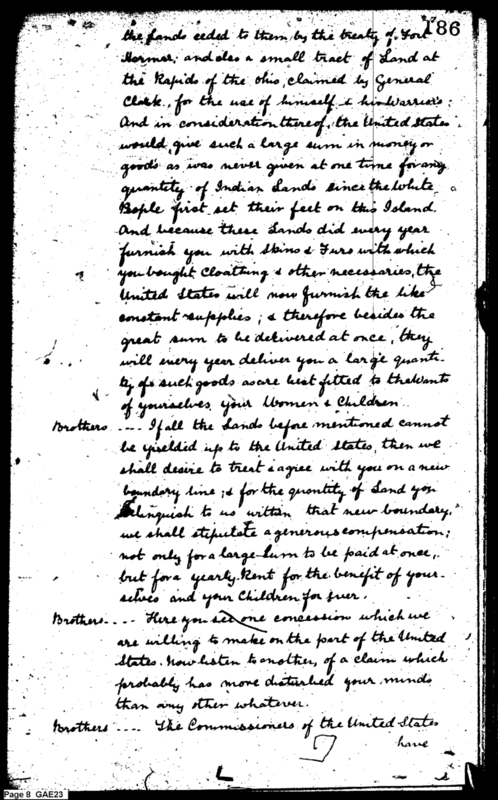 186
the Lands ceded to them by the treaty of Fort
Harmar; and also a small tract of Land at
the Rapids of the Ohio, claimed by General
Clark, for the use of himself & his Warriors:
And in consideration thereof, the United States
would, give such a large sum in money or
goods as was never given at one time for any
quantity of Indian Lands since the White
People first set their feet on this Island.
And because these Lands did every year
furnish you with Skins & Furs with which
you bought Cloathing & other necessaries, the
United States will now furnish the like
constant supplies; & therefore besides the
great sum to be delivered at once, they
will every year deliver you a large quanti-
ty of such goods as are best fitted to the Wants
of yourselves, your Women & Children.
Brothers .... If all the Lands before mentioned cannot
be yielded up to the United States, then we
shall desire to treat & agree with you on a new
boundary line; & for the quantity of Land you
relinquish to us within that new boundary,
we shall stipulate a generous compensation;
not only for a large Sum to be paid at once,
but for a yearly Rent for the benefit of your-
selves and your Children for ever.
Brothers .... Here you see one concession which we
are willing to make on the part of the United
States. Now listen to another, of a claim which
probably has more disturbed your minds
than any other whatever.
Brothers .... The Commissioners of the United States
have
Page 8 GAE23